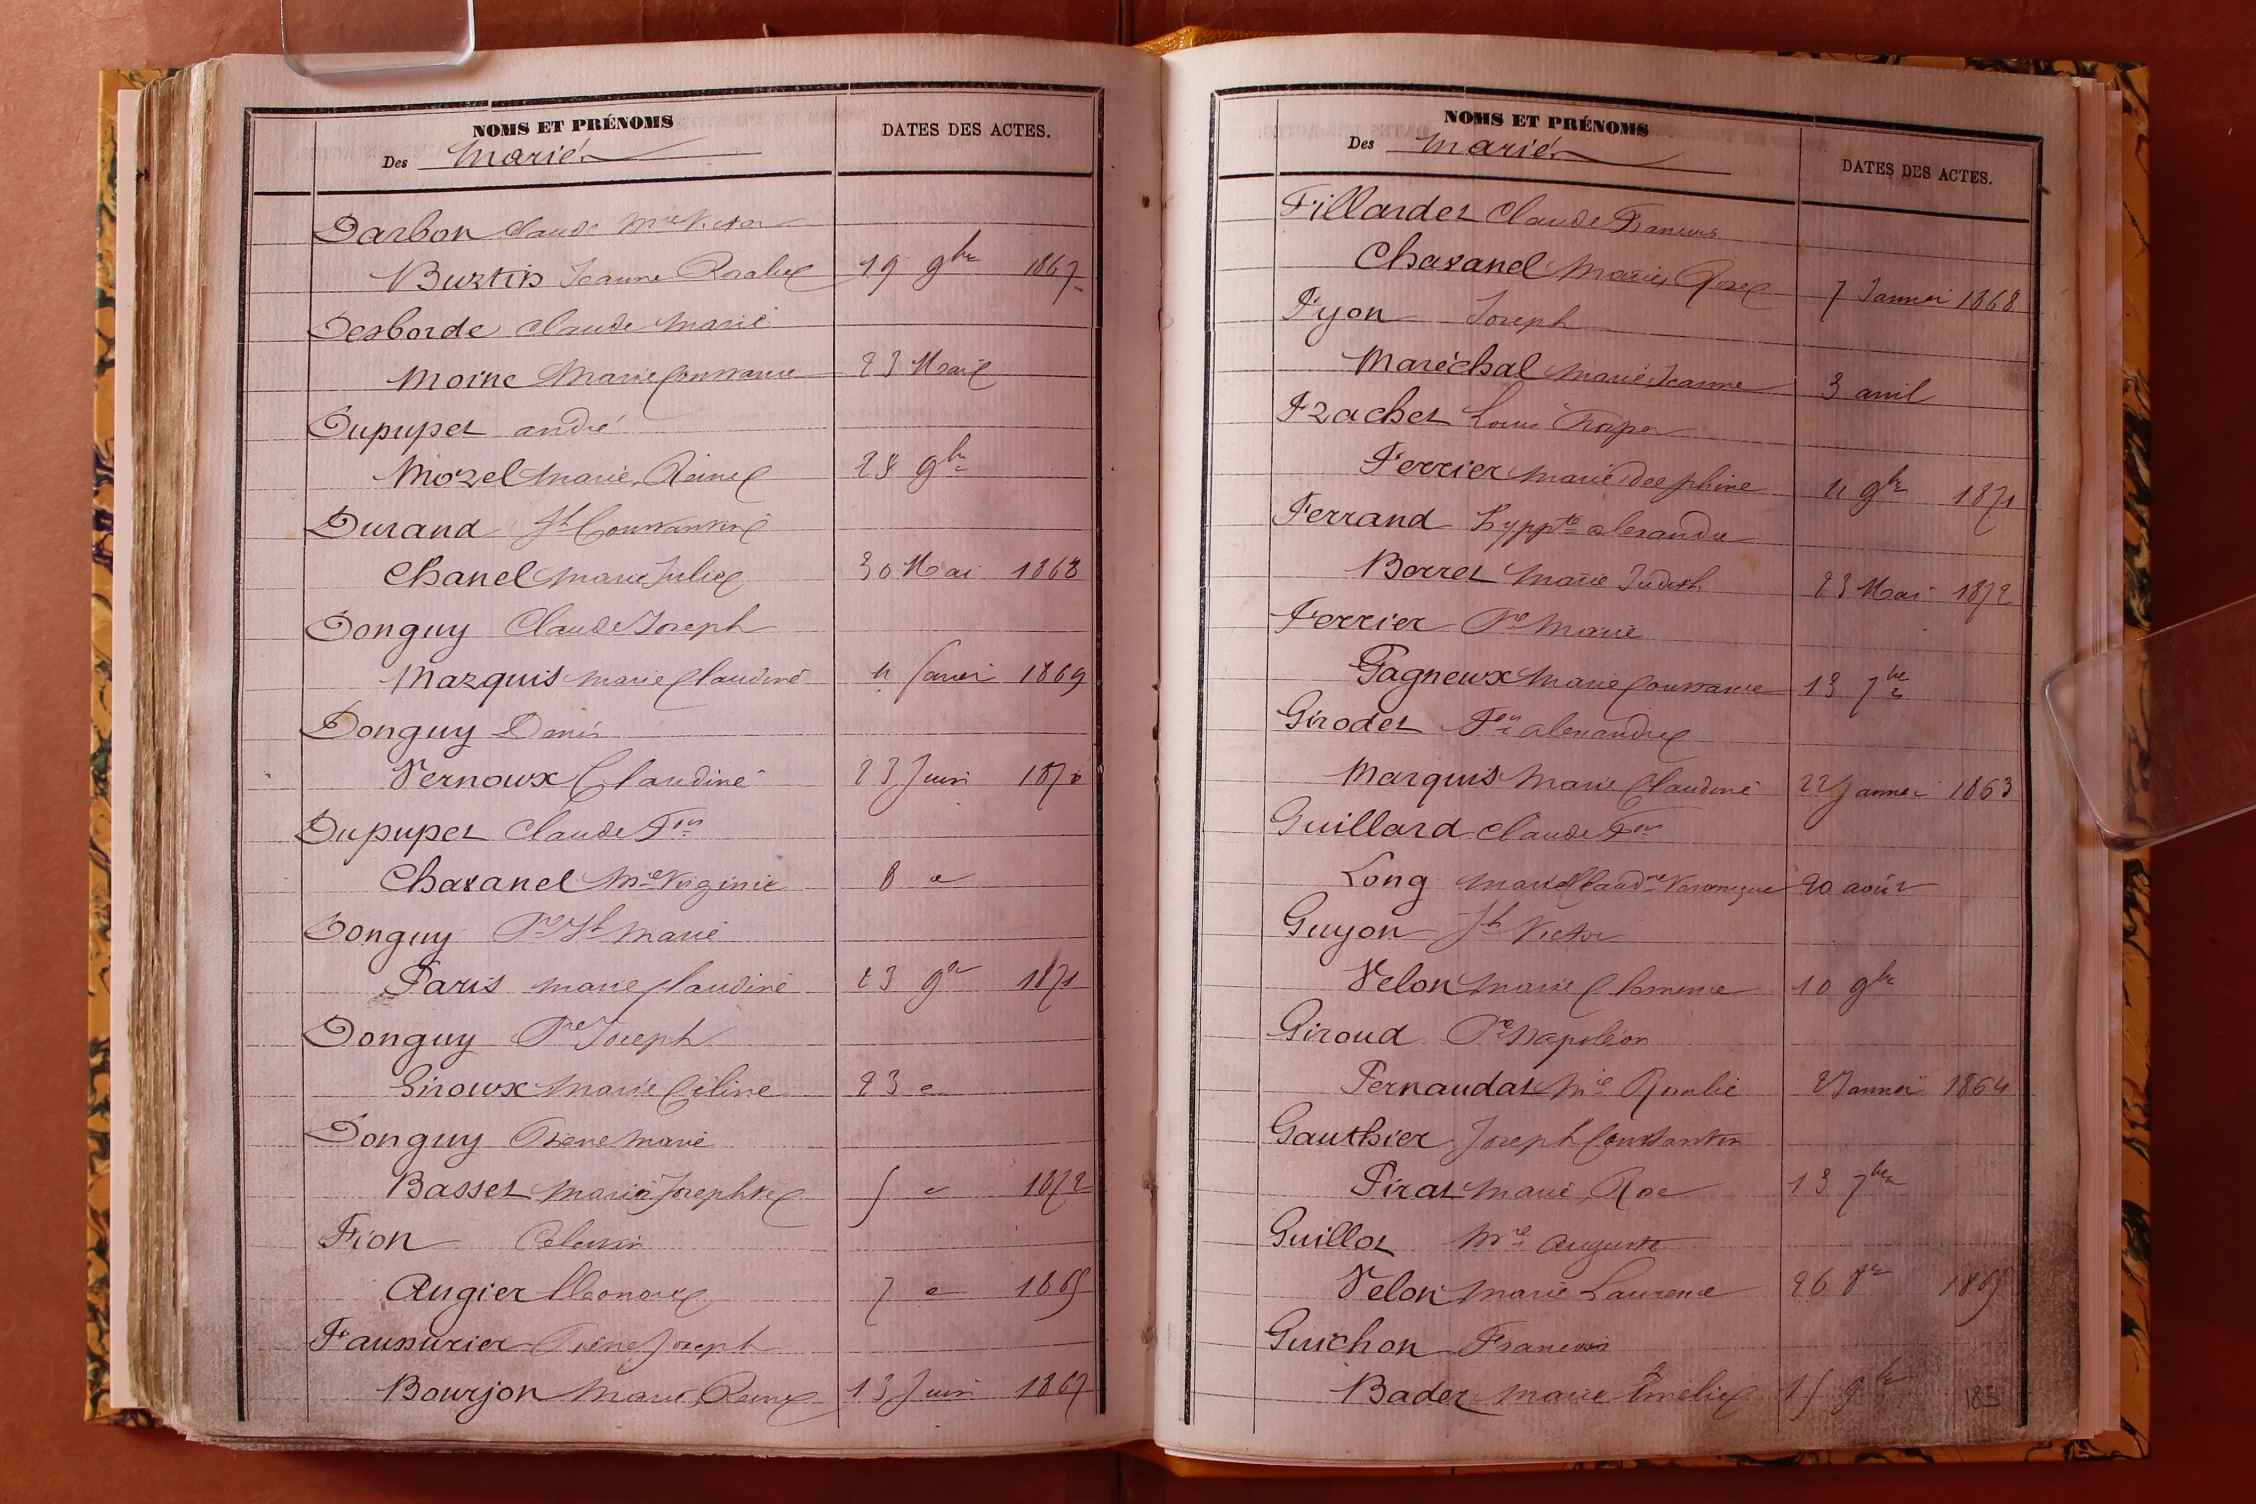 NOMS ET PRÉNOMS
DATES DES ACTES.
Des Mariés
Darbon Claude Mie Victor
Burtin Jeanne Rosalie 19 9bre 1867
Desborde Claude Marie
Moine Marie Constance 23 Mai
Dupupet André
Morel Marie Reine 28 9bre
Durand Jh Constantin
Chanel Marie Julie 30 Mai 1868
Donguy Claude Joseph
Marquis Marie Claudine 4 Janvier 1869
Donguy Denis
Vernoux Claudine 23 Juin 1870
Dupupet Claude Fois
Chavanel Mie Virginie 8 »
Donguy Pre Jh Marie
Paris Marie Claudine 23 9bre 1871
Donguy Pre Joseph
Giroux Marie Céline 23 »
Donguy Pierre Marie
Basset Marie Josephte 5 » 1872
Fion
Augier Eléonore 7 » 1865
Pierre Joseph
Bourjon Marie Reine 13 Juin 1867
NOMS ET PRÉNOMS
DATES DES ACTES.
Des Mariés
Fillardet Claude Francois
Chavanel Marie Rose 7 Janvier 1868
Fyon Joseph
Maréchal Marie Jeanne 3 avril
Frachet Louis Prosper
Ferrier Marie Delphine 4 9bre 1871
Ferrand Hyppte Alexandre
Borret Marie Judith 23 Mai 1872
Ferrier Pre Marie
Gagneux Marie Constance 13 7bre
Girodet Fois Alexandre
Marquis Marie Claudine 22 Janvier 1863
Guillard Claude Fois
Long Marie Claudne Véronique 20 août
Guyon Jh Victor
Velon Marie Clémence 10 9bre
Giroud Pre Napoléon
Pernaudat Mie Rosalie 2 Janvier 1864
Gauthier Joseph Constantin
Pirat Marie Rose 13 7bre
Guillot Mie Auguste
Velon Marie Laurence 26 8bre 1865
Guichon Francois
Bader Marie Emélie 15 9bre
185